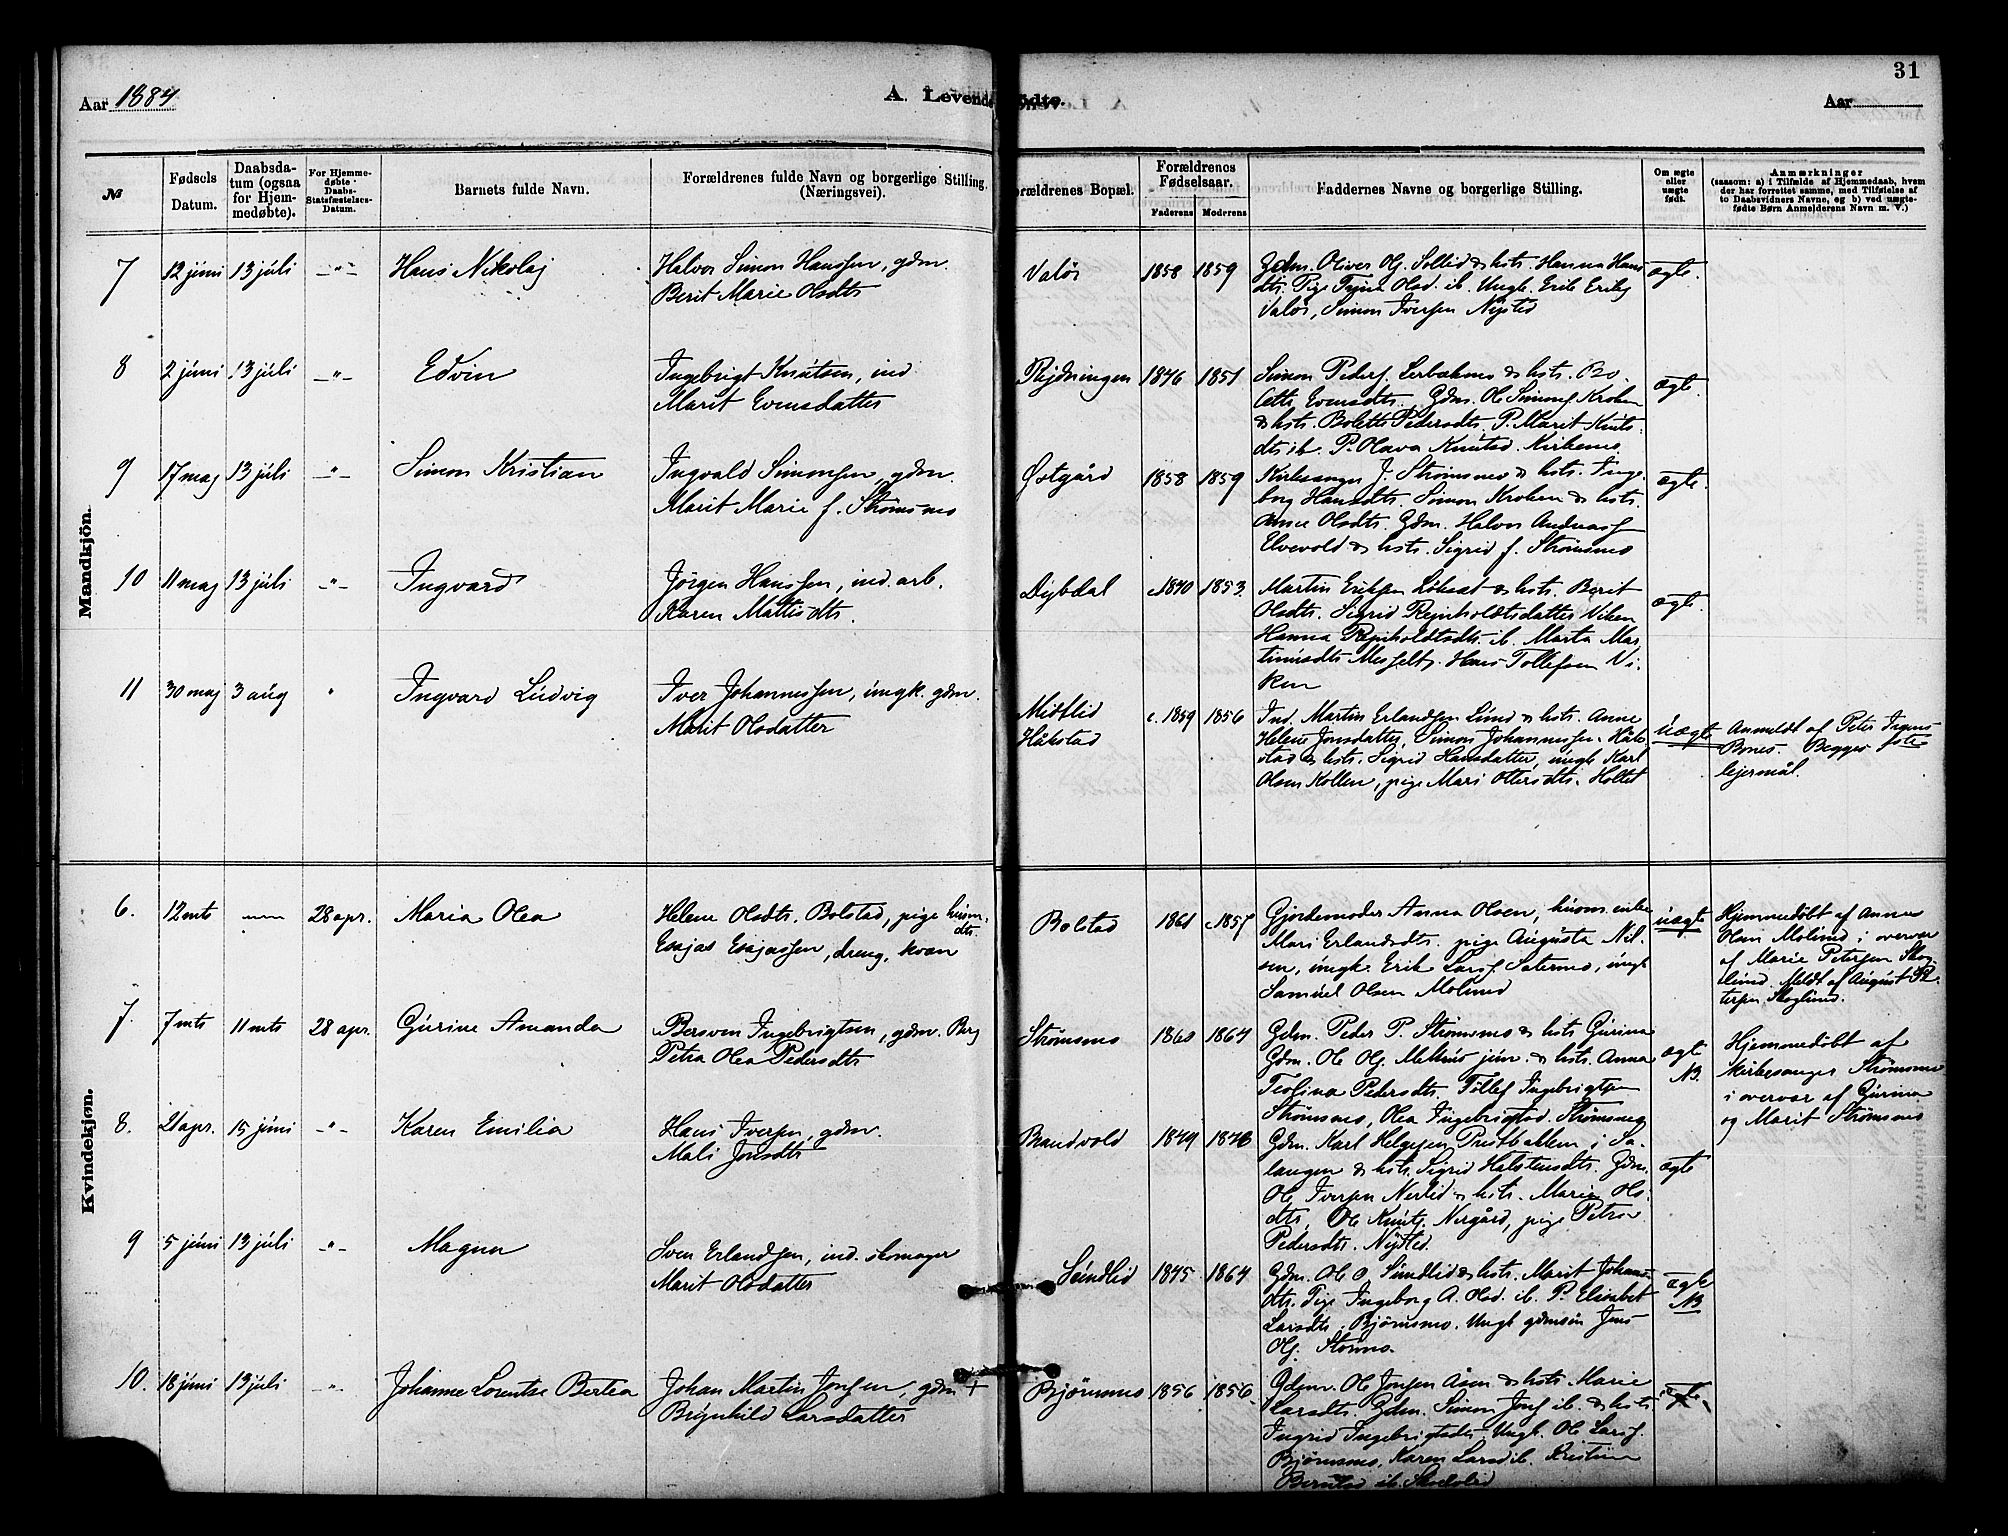 31
Aar 1884
A. Levende Fødte.
Aar
№
Fødsels Datum.
Daabsdatum (ogsaa for Hjemmedøbte).
For Hjemmedøbte Daabs-Stadfæstelses-Datum.
Barnets fulde Navn.
Forældrenes fulde Navn og borgerlige Stilling (Næringsvei).
Forældrenes Bopæl.
Forældrenes Fødselsaar.
Faderens
Moderens
Faddernes Navne og borgerlige Stilling.
Om ægte eller uægte født.
Anmærkninger
(saasom: a) i Tilfælde af Hjemmedaab, hvem
der har forrettet samme, med Tilføielse af
to Daabsvidners Navne, og b) ved uægte-
fødte Børn Anmelderens Navn m. V.)
Mandkjön.
7 12 juni 13 juli -"- Hans Nikolaj
Halvor Simon Hanssen, gdm.
Berit Marie Olsdts
Valøs 1858 1859
Gdm. Oliver Olsf. Sollid & hst. Hanna Hans
dts. Pige Trina Olsd. ib. Ungk. Erik Eriks
Valøs, Simon Iversen Nysted
ægte.
8 2 juni 13 juli -"- Edvin
Ingebrigt Knutsen, ind
Marit Evensdatter
Rydningen 1846 1851
Simon Peders. Lerbakmo & hst. Bo
lette Evensdts. Gdm. Ole Simons. Kroken
& hst. Bolette Pedersdts. P. Marit Knuts-
dts ib. P. Olava Knutsd. Kirkemo
ægte.
9 17 maj 13 juli -"- Simon Kristian
Ingvald Simonsen, gdm.
Marit Marie f. Strømsmo
Østgård 1858 1859
Kirkesanger J. Strømsmo & hst. Inge
borg Hansdts. Simon Kroken & hst.
Anne Olsdts. Gdm. Halvor Andreass
Elvevold & hst. Sigrid f. Strømsmo
ægte.
10 11 maj 13 juli -"- Ingvard
Jörgen Hanssen, ind. arb.
Karen Mattisdts.
Dybdal c.1840 1853.
Martin Eriksen Löksæt & hst. Berit
Olsdts. Sigrid Reinholdtsdatter Viken
Hanna Reinholdtsdts. ib. Marta Mar
tinusdts Messelt. Hans Tollefsen Vi-
ken
ægte.
11 30 maj 3 aug " Ingvard Ludvig
Iver Johannessen, ungk. gdm.
Marit Olsdatter
Midtlid
Håkstad
c. 1859 1856
Ind. Martin Erlandsen Lund & hst. Anne
Helene Jonsdatter, Simon Johannessen Håk
stad & hst. Sigrid Hansdatter, ungk Karl
Olsen Kollen, pige Mari Ottersdts. Holtet
uægte
Anmeldt af Peter
Bones. Begges 1ste
lejermål.
Kvindekjøn.
6. 12 mts 28 apr. Maria Olea
Helene Olsdts. Bolstad, pige husm.
dts.
Esajas Esajassen, dreng, kvæn
Bolstad 1861 c.1857
Gjordemoder Anna Olsen, husm. enke
Mari Erlandsdts. pige Augusta Nil-
sen, ungk. Erik Larsf. Sætermo, ungk
Samuel Olsen Molund
uægte
Hjemmedöbt af Anna
Olsen Molund i overvær
af Marie Petersen Skog
lund. Meldt af August Pe
tersen Skoglund.
7. 7 mts 11 mts 28 apr. Gurine Amanda
Bersven Ingebrigtsen, gdm. Berg
Petra Olea Pedersdts
Strømsmo 1860 1864
Gdm. Peder P. Strømsmo & hst Gurina
Gdm. Ole Ols. Melhus jun. & hst. Anna
Teolina Pedersdts. Tollef Ingebrigtsen
Strømsmo, Olea Ingebrigtsd. Strømsmo
ægte
NB.
Hjemmedöbt af
kirkesanger Strømsmo
i overvær af Gurina
og Marit Strømsmo
8. 21 apr. 15 juni -"- Karen Emilia
Hans Iversen, gdm.
Mali Jonsdts
Brandvold 1849 1846
Gdm. Karl Helgesen Prestbakken i Sa-
langen & hst. Sigrid Halstensdts. Gdm.
Ole Iversen Nerlid & hst. Marie Ols-
dts, Ole Knuts. Nergård, pige Petra
Pedersdts. Nysted.
ægte
9 5 juni 13 juli -"- Magna
Sven Erlandsen, ind. skomager
Marit Olsdatter
Sundlid 1845 1864
Gdm. Ole O. Sundlid & hst. Marit Johans
dts. Pige Ingeborg A. Olsd. ib. P. Elisabet
Larsdts. Björnsmo. Ungk gdmsøn Jens
Ols. Stormo.
ægte
NB
10. 18 juni 13 juli -"- Johanne Lorentse Bertea
Johan Martin Jonsen, gdm +
Brynhild Larsdatter
Björnsmo 1856 1856
Gdm. Ole Jonsen Åsen & hst. Marie
Larsdts. Gdm. Simon Jons. ib. & hst.
Ingrid Ingebrigtsdts. Ungk. Ole Larsf.
Björnsmo, Karen Larsd ib. Kristine
Berntsd ib.
ægte